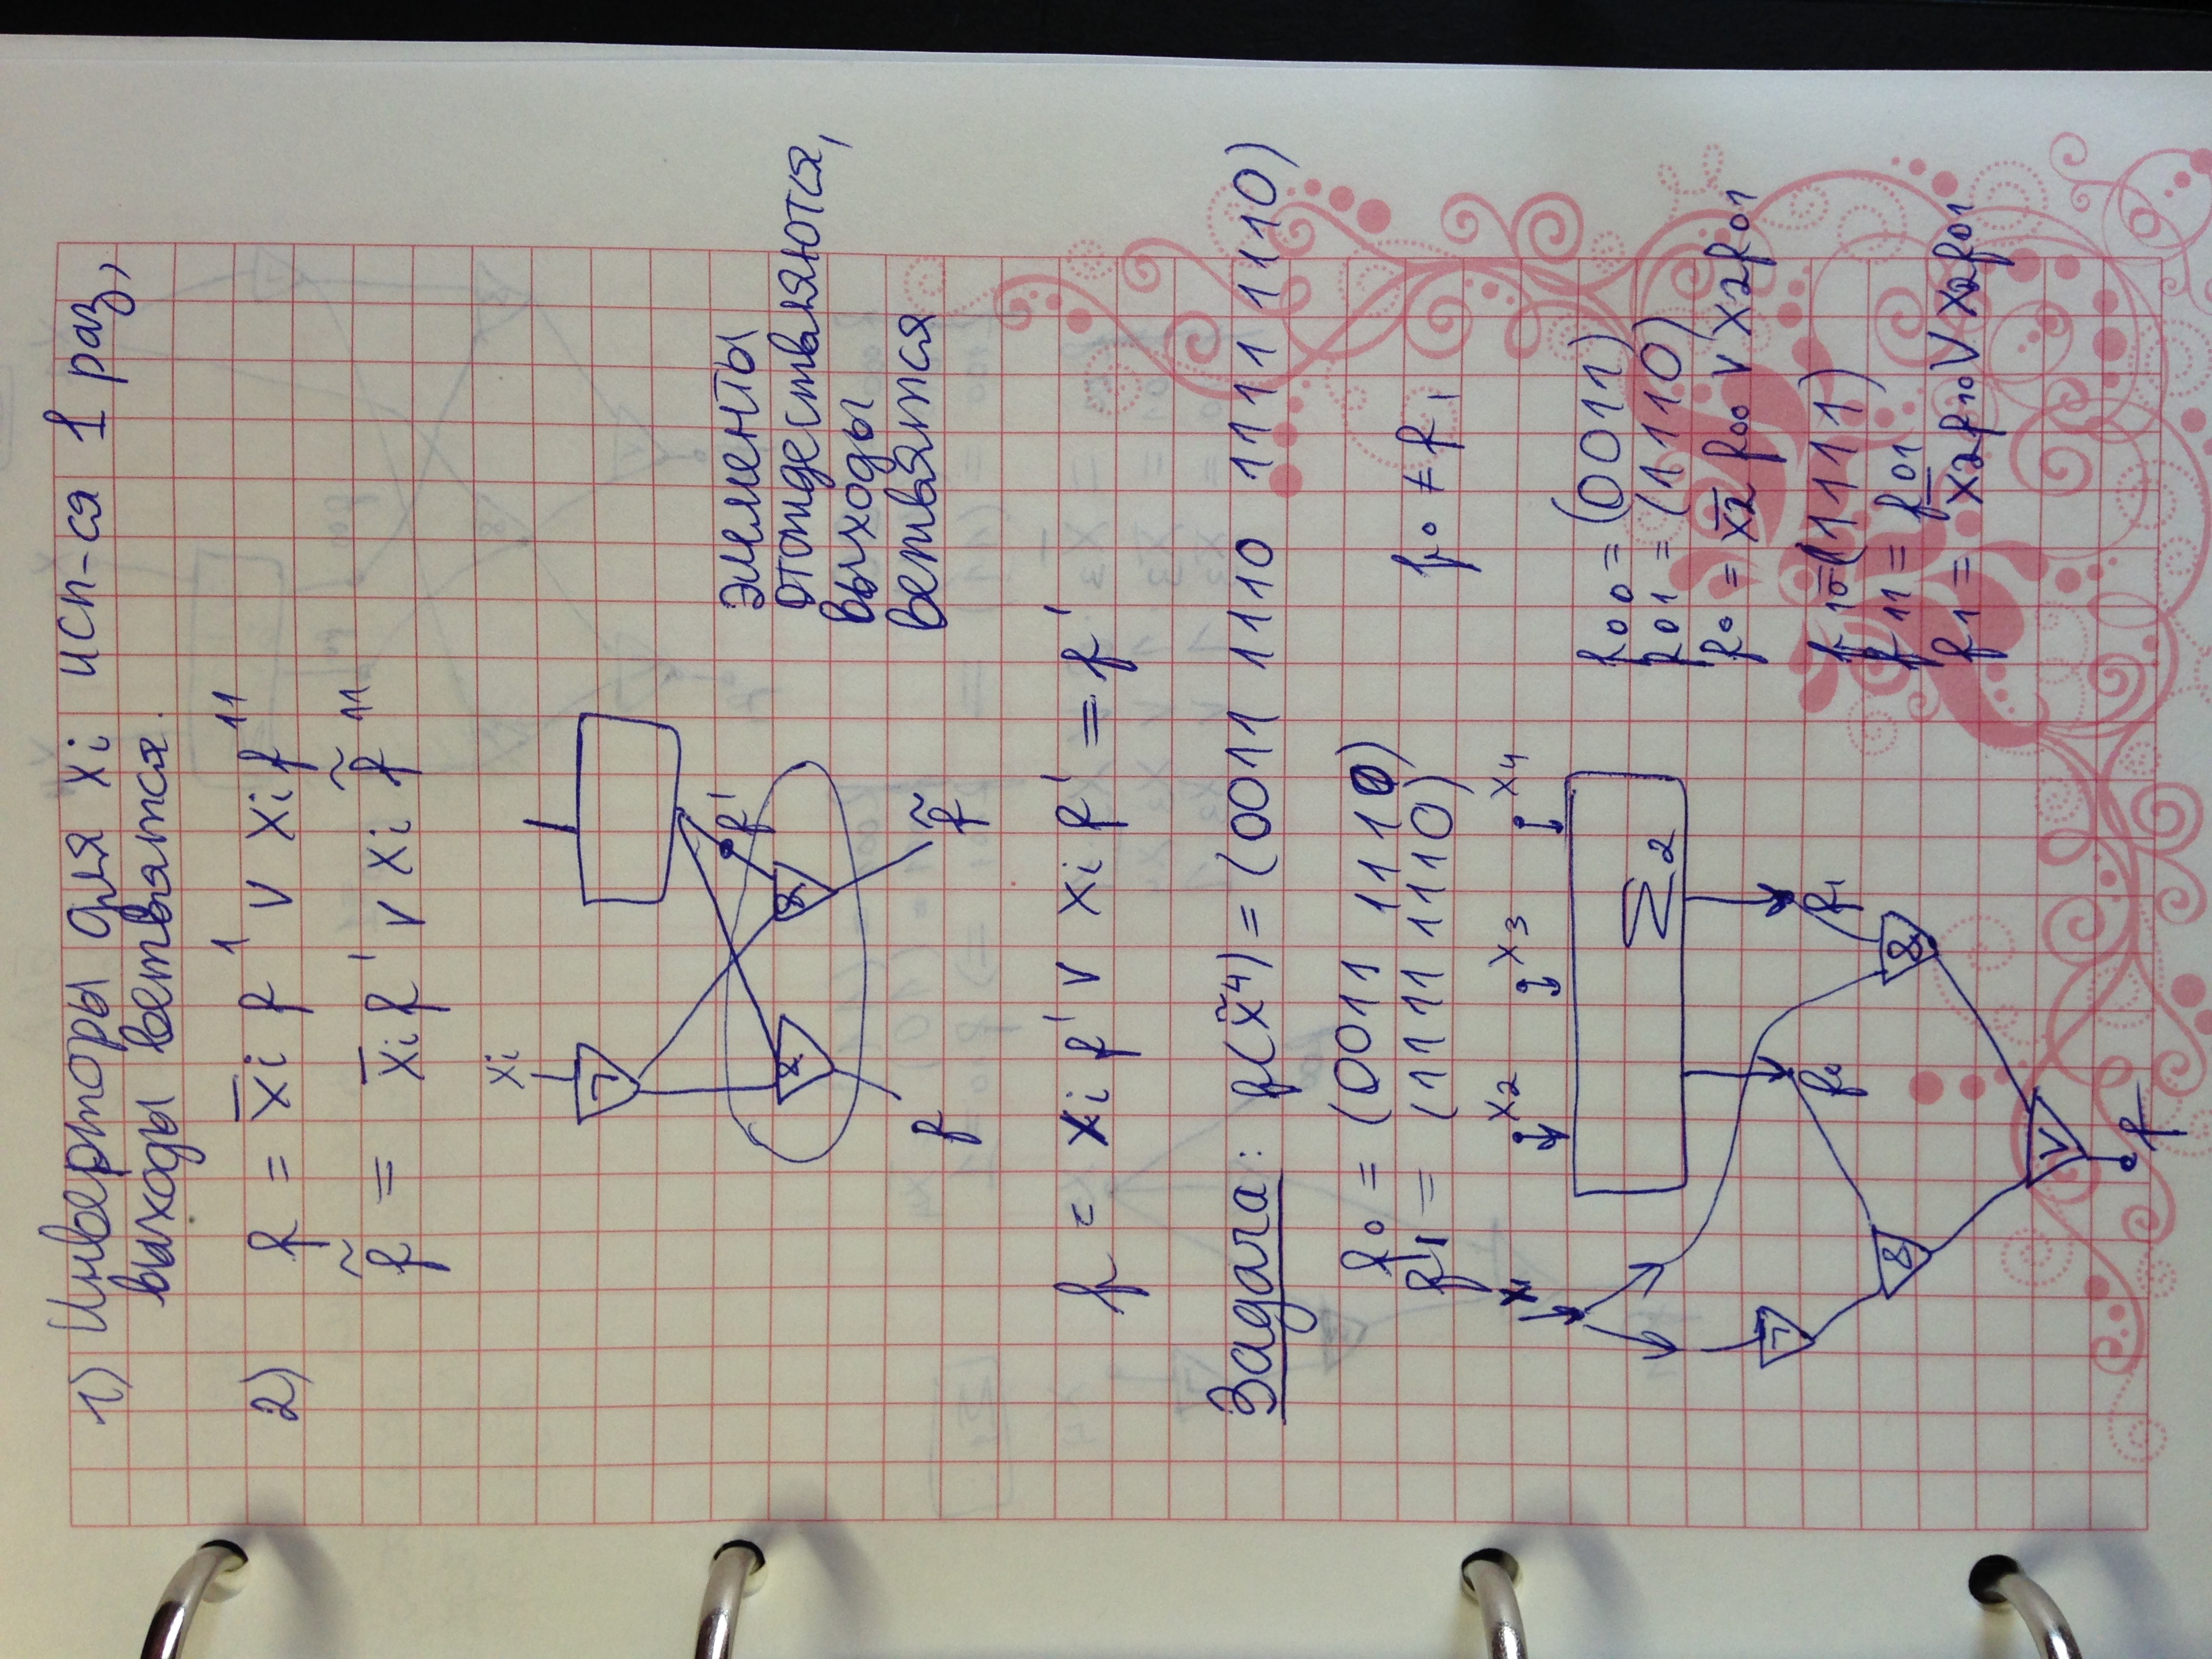 1) Инверторы для xi исп-ся 1 раз,
выходы ветвятся.
2) f = x̄i f' v xi f''
f̃ = x̄i f' v xi f̃''
xi
7
f'
& &
f f̃
элементы
отождествляются,
выходы
ветвятся
f = xi f' v xi f' = f'
Задача: f(x̃⁴) = (0011 1110 1111 1110)
f0 = (0011 1110)
f1 = (1111 1110)
f0 ≠ f1
x x2 x3 x4
Σ2
f0 f1
7 & &
v
f
f00 = (0011)
f01 = (1110)
f0 = x̄2 f00 v x2 f01
f10 = (1111)
f11 = f01
f1 = x̄2 f10 v x2 f01